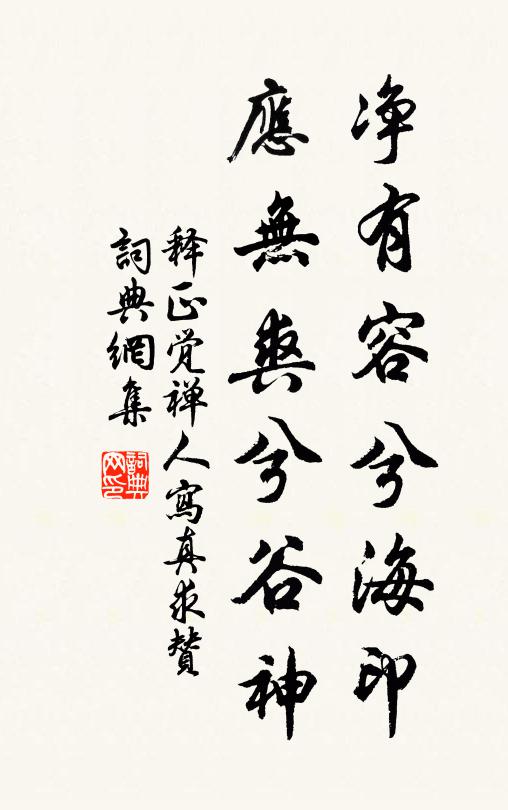 净有容兮海印
應無爽兮谷神
释正觉禅人寫真求贊
詞典網集
詞典网印